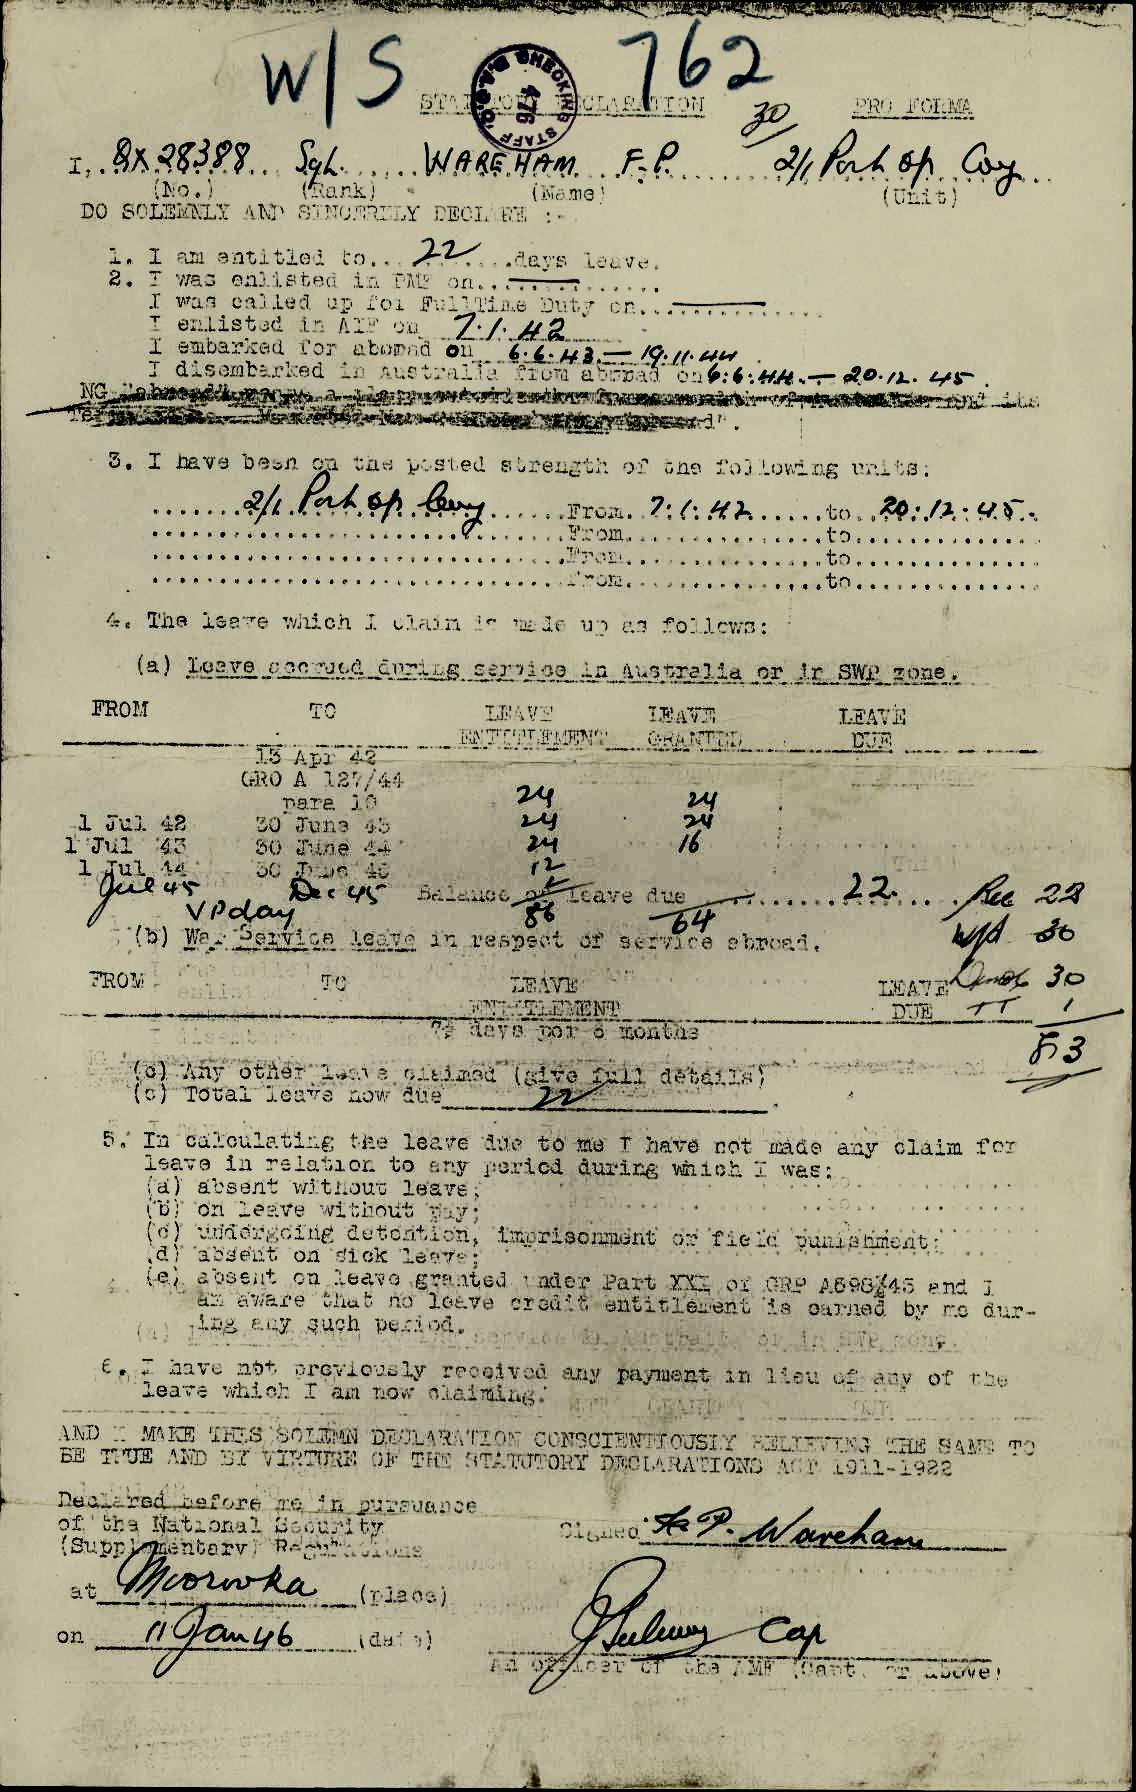 W/S 762
CHECKING STAFF 476 D.A.G.O.
STATUTORY DECLARATION 30 PRO FORMA
I, QX 28388 Sgt. WAREHAM F.P. 2/1 Port Op Coy
(No.) (Rank) (Name) (Unit)
DO SOLEMNLY AND SINCERELY DECLARE :-
1. I am entitled to...22.......days leave.
2. I was enlisted in PMF on...————......
I was called up for FullTime Duty on...————......
I enlisted in AIF on 7.1.42
I embarked for abroad on 6.6.43.— 19.11.44
I disembarked in Australia from abroad on 6.6.44.— 20.12.45.
3. I have been on the posted strength of the following units:
2/1 Port Op Coy From. 7.1.42 to 20.12.45.
From to
From to
From to
4. The leave which I claim is made up as follows:
(a) Leave accrued during service in Australia or in SWP zone.
FROM TO LEAVE LEAVE LEAVE
ENTITLEMENT GRANTED DUE
13 Apr 42
GRO A 127/44
para 10 24 24
1 Jul 42 30 June 43 24 24
1 Jul 43 30 June 44 24 16
1 Jul 44 30 June 45 12
Jul 45 Dec 45 Balance of leave due 22. Rec 22
VP day 86 64
(b) War Service leave in respect of service abroad. W/S 30
FROM TO LEAVE LEAVE 30
ENTITLEMENT DUE TT 1
7½ days per 6 months
83
(c) Any other leave claimed (give full details)
(c) Total leave now due 22
5. In calculating the leave due to me I have not made any claim for
leave in relation to any period during which I was:
(a) absent without leave;
(b) on leave without pay;
(c) undergoing detention, imprisonment or field punishment;
(d) absent on sick leave;
(e) absent on leave granted under Part XXI of GRP A698/45 and I
am aware that no leave credit entitlement is earned by me dur-
ing any such period.
6. I have not previously received any payment in lieu of any of the
leave which I am now claiming.
AND I MAKE THIS SOLEMN DECLARATION CONSCIENTIOUSLY BELIEVING THE SAME TO
BE TRUE AND BY VIRTURE OF THE STATUTORY DECLARATIONS ACT 1911-1922
Declared before me in pursuance
of the National Security
(Supplementary) Regulations
Signed F. P. Wareham
at Moorooka (place)
on 11 Jan 46 (date)
Cap
An officer of the AMF (Capt. or above)